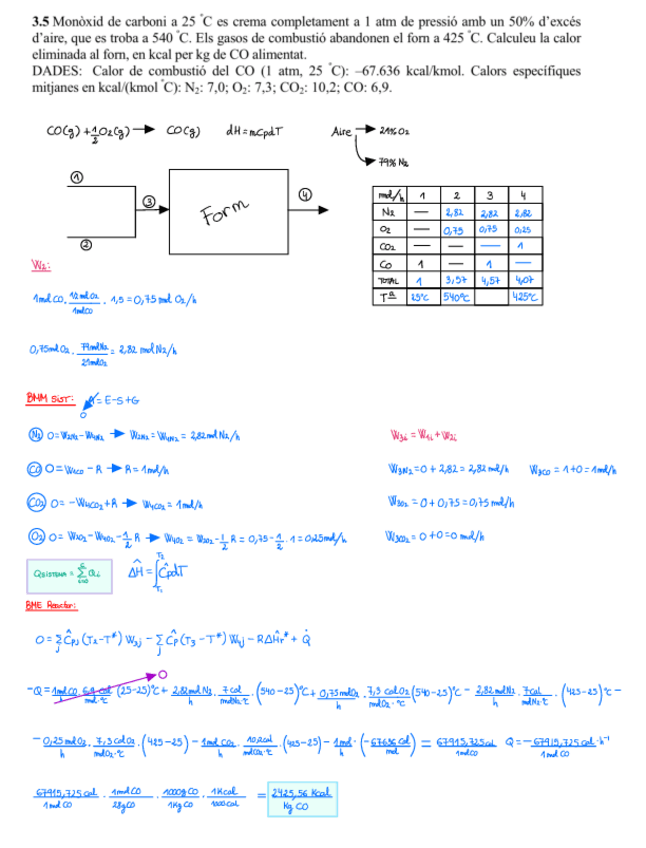 3.5 Monòxid de carboni a 25 ˚C es crema completament a 1 atm de pressió amb un 50% d'excés
d'aire, que es troba a 540 ˚C. Els gasos de combustió abandonen el forn a 425 ˚C. Calculeu la calor
eliminada al forn, en kcal per kg de CO alimentat.
DADES: Calor de combustió del CO (1 atm, 25 ˚C): –67.636 kcal/kmol. Calors específiques
mitjanes en kcal/(kmol ˚C): N₂: 7,0; O₂: 7,3; CO₂: 10,2; CO: 6,9.
CO(g) + 1/2 O₂(g) → CO(g) dH = mCpdT Aire → 21% O₂
→ 79% N₂
① ② ③ ④ Form
mol/h 1 2 3 4
N₂ — 2,82 2,82 2,82
O₂ — 0,75 0,75 0,25
CO₂ — — — 1
CO 1 — 1 —
TOTAL 1 3,57 4,57 4,07
Tª 25ºC 540ºC 425ºC
W₂:
1mol CO · 1/2 mol O₂/1mol CO · 1,5 = 0,75 mol O₂/h
0,75mol O₂ · 79mol N₂/21mol O₂ = 2,82 mol N₂/h
BMM SIST: A = E-S+G
0
N₂ 0 = W₂N₂ - W₄N₂ → W₂N₂ = W₄N₂ = 2,82 mol N₂/h W₃i = W₁i + W₂i
CO 0 = W₁CO - R → R = 1mol/h W₃N₂ = 0 + 2,82 = 2,82 mol/h W₃CO = 1+0 = 1mol/h
CO₂ 0 = -W₄CO₂ + R → W₄CO₂ = 1mol/h W₃O₂ = 0 + 0,75 = 0,75 mol/h
O₂ 0 = W₂O₂ - W₄O₂ - 1/2 R → W₄O₂ = W₂O₂ - 1/2 R = 0,75 - 1/2 · 1 = 0,25mol/h W₃CO₂ = 0+0 = 0 mol/h
ΔĤ = ∫ĈpdT
BME Reactor:
0 = Σ Ĉpj (T₂-T*) W₃j - Σ Ĉp (T₃-T*) W₄j - RΔĤr* + Q̇
0
-Q = 1mol CO/h · 6,9 cal/mol·ºC (25-25)ºC + 2,82mol N₂/h · 7 cal/mol N₂·ºC · (540-25)ºC + 0,75mol O₂/h · 7,3 cal O₂/mol O₂·ºC (540-25)ºC - 2,82mol N₂/h · 7cal/mol N₂·ºC · (425-25)ºC -
- 0,25mol O₂/h · 7,3 cal O₂/mol O₂·ºC · (425-25) - 1mol CO₂/h · 10,2cal/mol CO₂·ºC · (425-25) - 1mol/h · (-67636 cal/mol) = 67915,725cal/1mol CO Q = -67915,725 cal·h⁻¹/1mol CO
67915,725 cal/1mol CO · 1mol CO/28g CO · 1000g CO/1Kg CO · 1Kcal/1000cal = 2425,56 Kcal/Kg CO